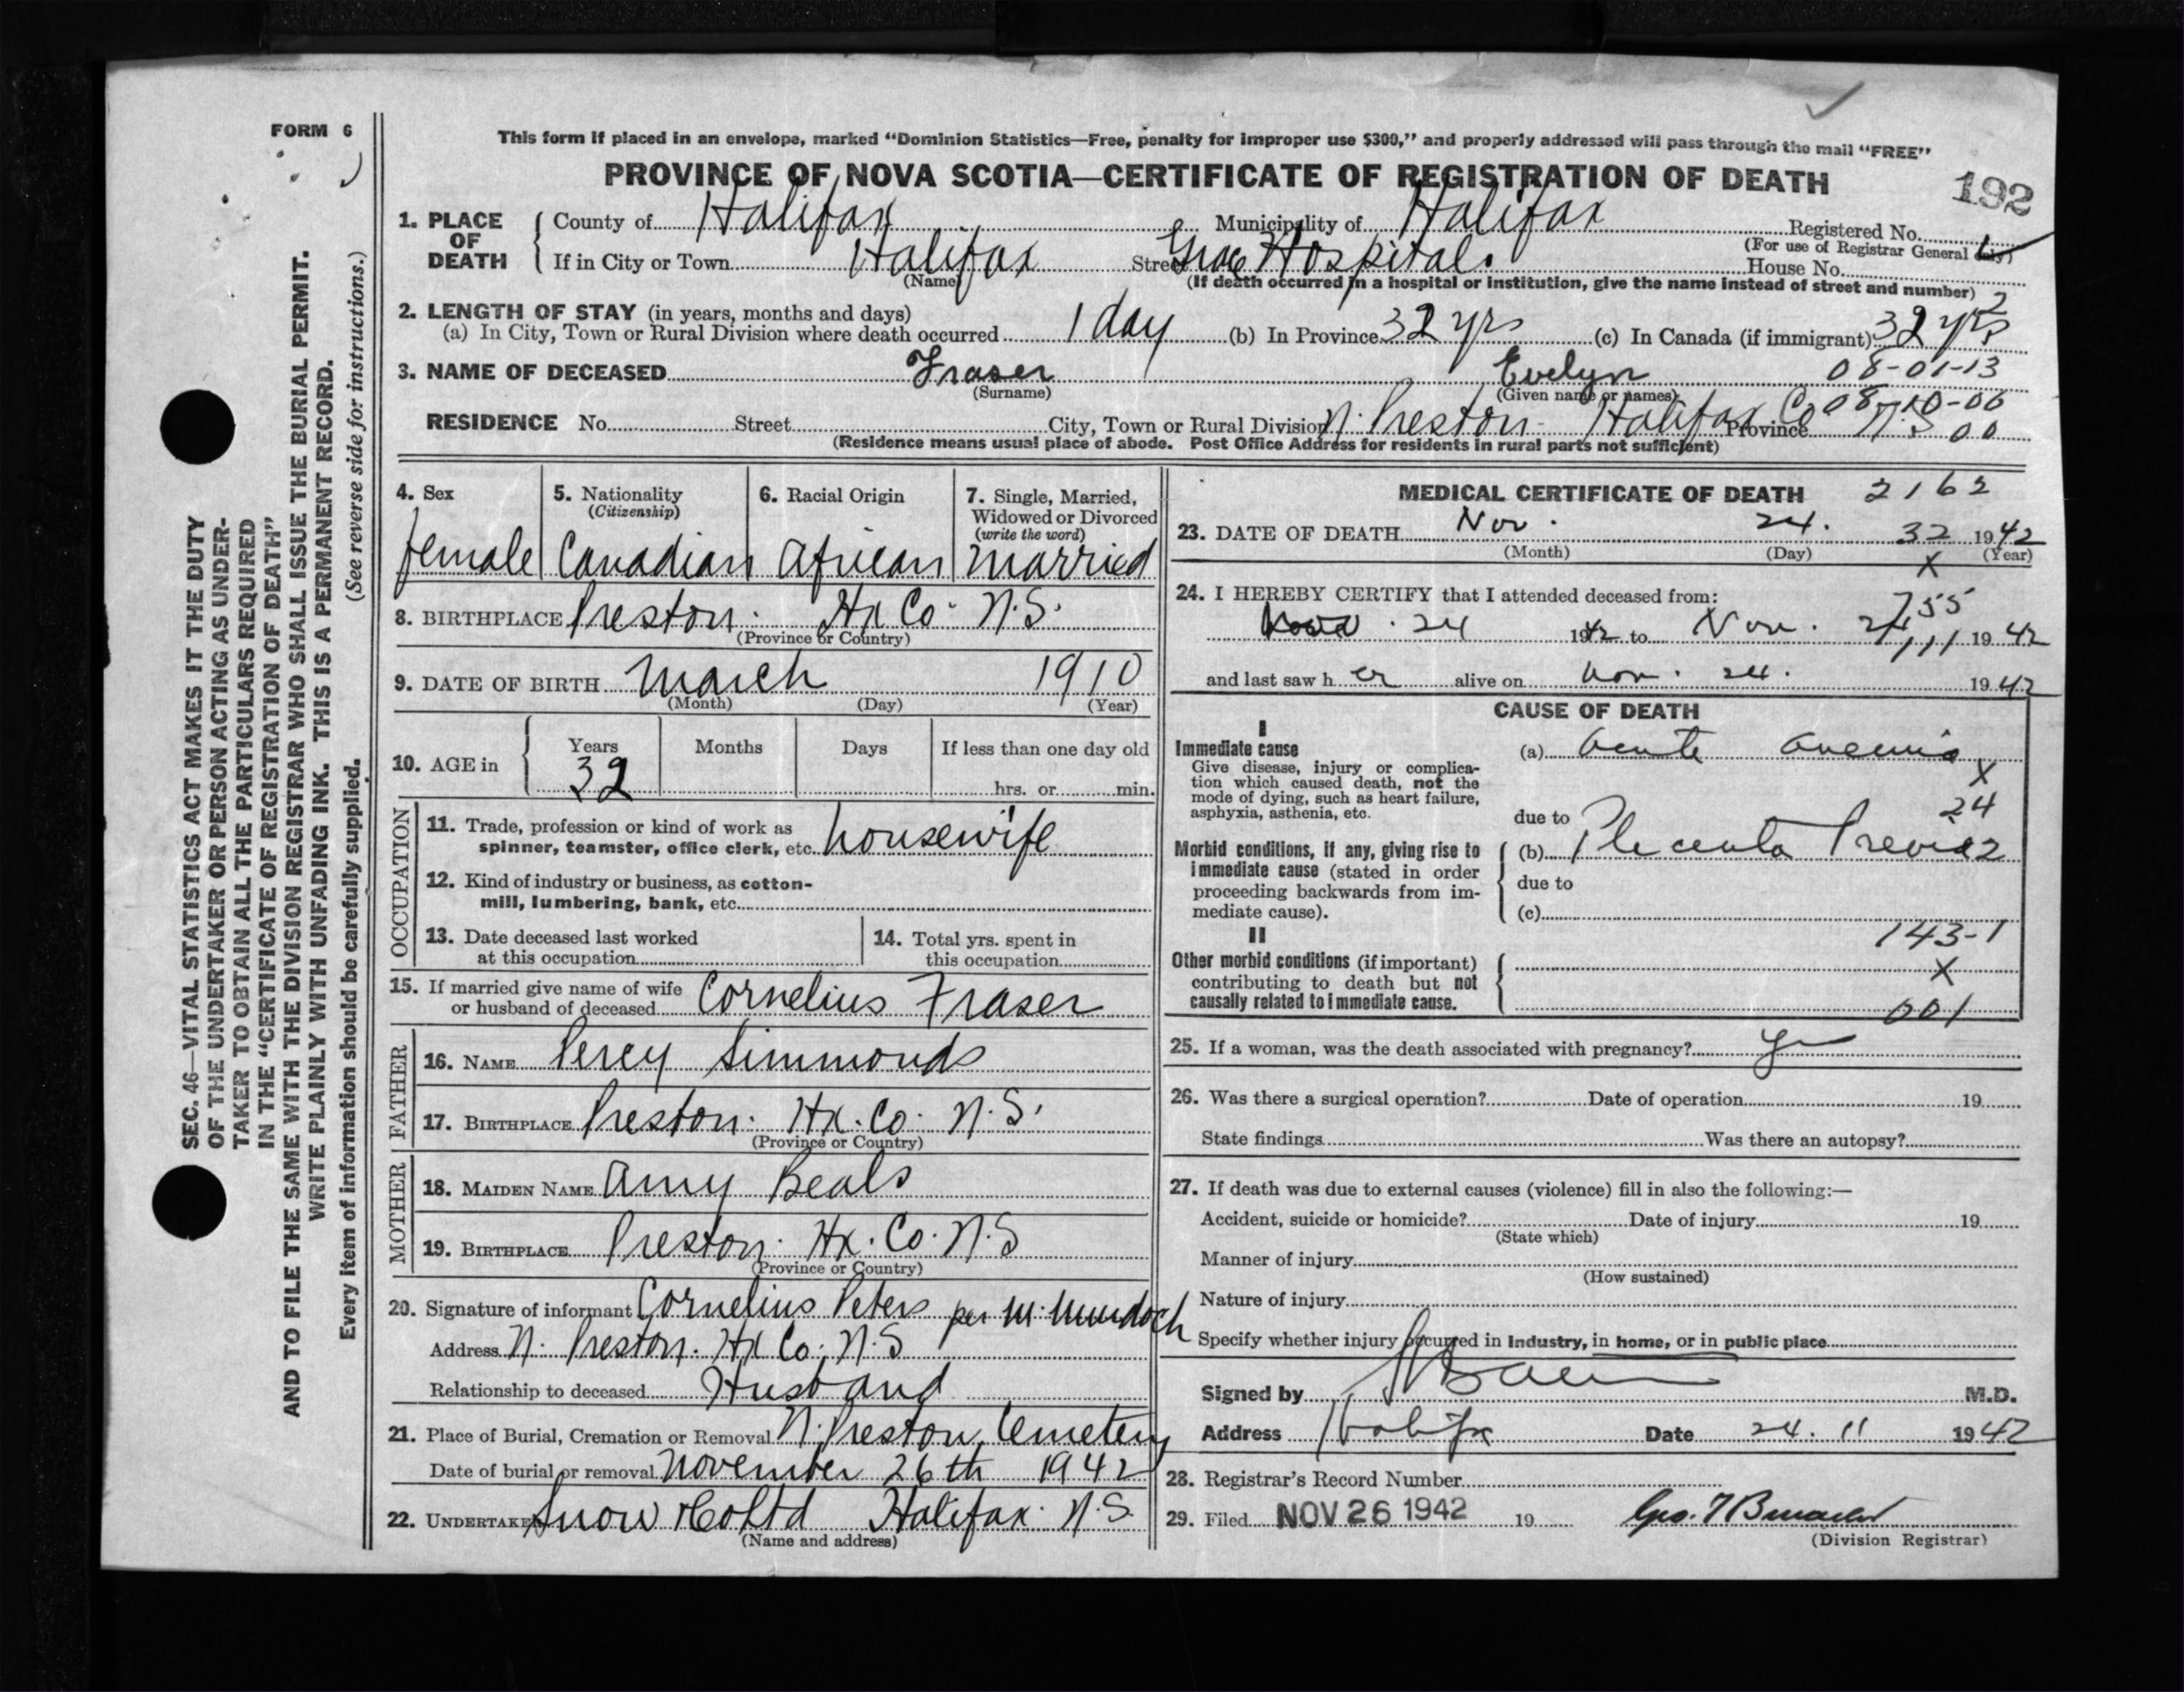 FORM 6
This form if placed in an envelope, marked “Dominion Statistics—Free, penalty for improper use $300,” and properly addressed will pass through the mail “FREE”
PROVINCE OF NOVA SCOTIA—CERTIFICATE OF REGISTRATION OF DEATH
192
1. PLACE OF DEATH
County of Halifax Municipality of Halifax Registered No.
(For use of Registrar General only)
If in City or Town Halifax Street Grace Hospital. House No.
(Name) (If death occurred in a hospital or institution, give the name instead of street and number)
2. LENGTH OF STAY (in years, months and days)
(a) In City, Town or Rural Division where death occurred 1 day (b) In Province 32 yrs (c) In Canada (if immigrant) 32 yrs
2
3. NAME OF DECEASED Fraser Evelyn 08-01-13
(Surname) (Given name or names)
08-10-06
RESIDENCE No. Street City, Town or Rural Division N. Preston - Halifax Co Province N.S 00
(Residence means usual place of abode. Post Office Address for residents in rural parts not sufficient)
4. Sex female
5. Nationality (Citizenship) Canadian
6. Racial Origin African
7. Single, Married, Widowed or Divorced (write the word) married
8. BIRTHPLACE Preston. Hx Co. N.S.
(Province or Country)
9. DATE OF BIRTH March 1910
(Month) (Day) (Year)
10. AGE in Years 32 Months Days If less than one day old
hrs. or min.
OCCUPATION
11. Trade, profession or kind of work as spinner, teamster, office clerk, etc. housewife
12. Kind of industry or business, as cotton-mill, lumbering, bank, etc.
13. Date deceased last worked at this occupation
14. Total yrs. spent in this occupation
15. If married give name of wife or husband of deceased Cornelius Fraser
FATHER
16. NAME Percy Simmonds
17. BIRTHPLACE Preston. Hx. Co. N.S.
(Province or Country)
MOTHER
18. MAIDEN NAME Amy Beals
19. BIRTHPLACE Preston. Hx. Co. N.S
(Province or Country)
20. Signature of informant Cornelius Peters per M. Murdoch
Address N. Preston. Hx Co. N.S
Relationship to deceased Husband
21. Place of Burial, Cremation or Removal N. Preston Cemetery
Date of burial or removal November 26th 1942
22. UNDERTAKER Snow & Co Ltd Halifax. N.S.
(Name and address)
MEDICAL CERTIFICATE OF DEATH 2162
23. DATE OF DEATH Nov. 24. 32 1942
(Month) (Day) (Year)
X
24. I HEREBY CERTIFY that I attended deceased from:
755
Nov. 24 1942 to Nov. 24 1942
and last saw h er alive on Nov. 24. 1942
CAUSE OF DEATH
I
Immediate cause
Give disease, injury or complication which caused death, not the mode of dying, such as heart failure, asphyxia, asthenia, etc.
(a) Acute Anemia
X
24
due to
Morbid conditions, if any, giving rise to immediate cause (stated in order proceeding backwards from immediate cause).
(b) Placenta Previa 2
due to
(c)
143-1
II
Other morbid conditions (if important) contributing to death but not causally related to immediate cause.
X
001
25. If a woman, was the death associated with pregnancy? Yes
26. Was there a surgical operation? Date of operation 19
State findings Was there an autopsy?
27. If death was due to external causes (violence) fill in also the following:—
Accident, suicide or homicide? Date of injury 19
(State which)
Manner of injury
(How sustained)
Nature of injury
Specify whether injury occurred in industry, in home, or in public place
Signed by M.D.
Address Halifax Date 24. 11 1942
28. Registrar's Record Number
29. Filed NOV 26 1942 19
(Division Registrar)
SEC. 46—VITAL STATISTICS ACT MAKES IT THE DUTY
OF THE UNDERTAKER OR PERSON ACTING AS UNDER-
TAKER TO OBTAIN ALL THE PARTICULARS REQUIRED
IN THE “CERTIFICATE OF REGISTRATION OF DEATH”
AND TO FILE THE SAME WITH THE DIVISION REGISTRAR WHO SHALL ISSUE THE BURIAL PERMIT.
WRITE PLAINLY WITH UNFADING INK. THIS IS A PERMANENT RECORD.
Every item of information should be carefully supplied. (See reverse side for instructions.)